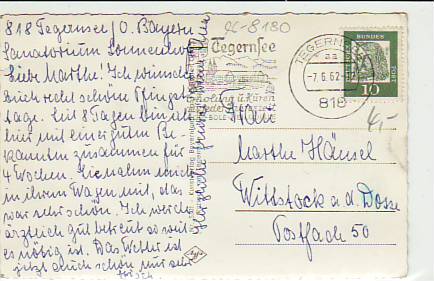 818 Tegernsee / O. Bayern
Sanatorium Sonnenhof
Liebe Marthe! Ich wünsche
Euch recht schöne Pfingst-
tage. Seit 8 Tagen bin ich
hier mit einer guten Be-
kannten zusammen für
4 Wochen. Sie nahm mich
in ihrem Wagen mit, das
war sehr schön. Ich werde
ärztlich gut betreut so weit
es nötig ist. Das Wetter ist
jetzt auch schön nur sehr
frisch
Herzliche
96-8180
Tegernsee
Erholung u. Kuren
zu jeder Jahreszeit
TEGERNSEE
aa
-7.6.62-
818
DEUTSCHE
BUNDES
POST
10
4,-
Frau
Marthe Hänsel
Wittstock a. d. Dosse
Postfach 50
Agfa